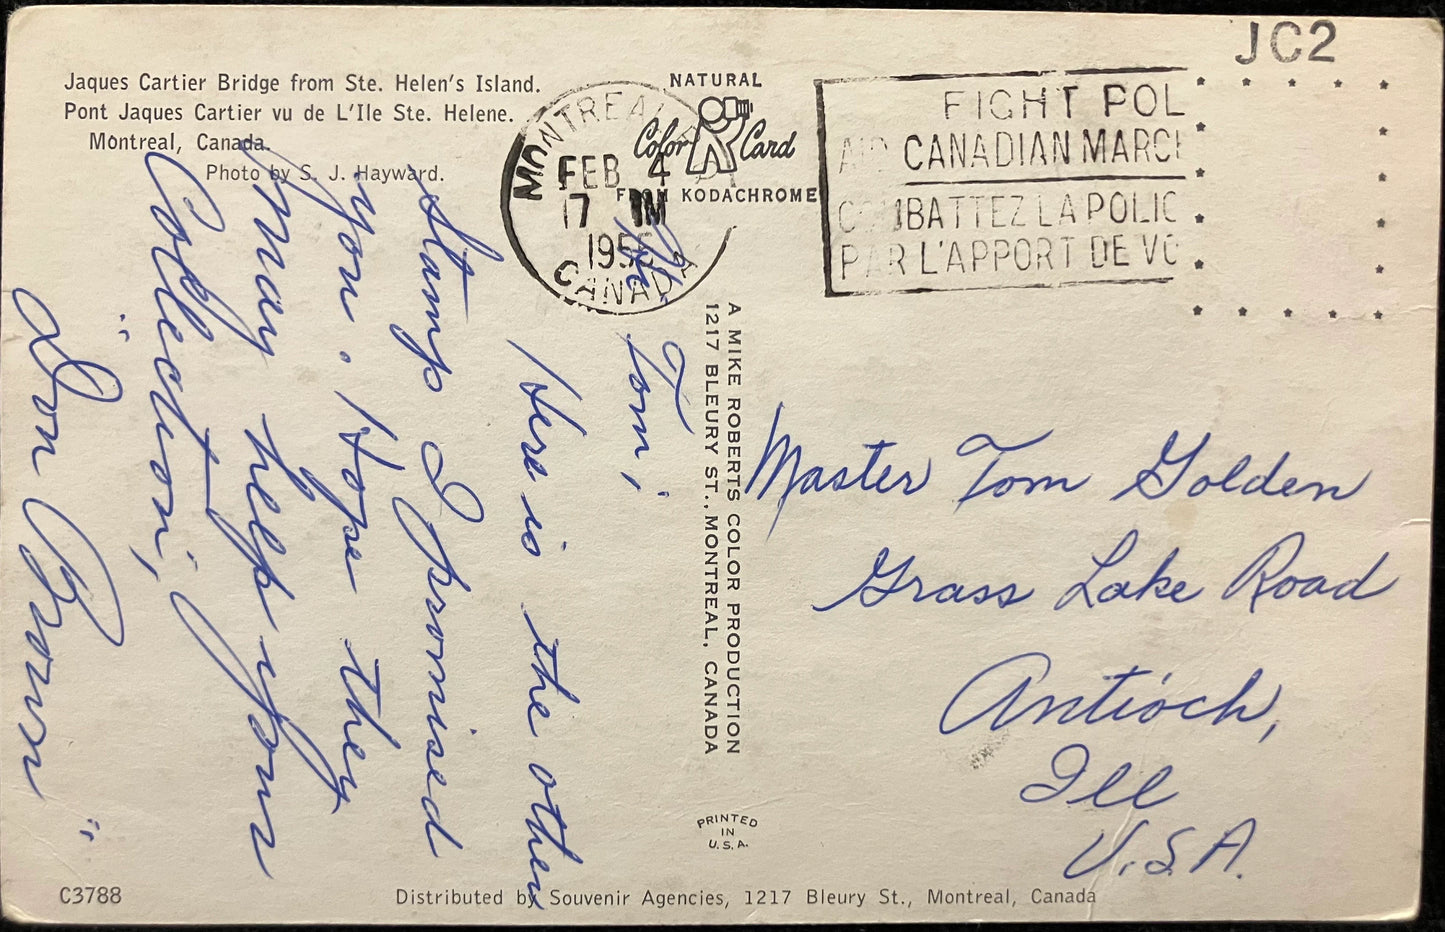 Jaques Cartier Bridge from Ste. Helen's Island.
Pont Jaques Cartier vu de L'Ile Ste. Helene.
Montreal, Canada.
Photo by S. J. Hayward.
NATURAL
Color Card
FROM KODACHROME
MONTREAL
FEB 4
17
195
CANADA
JC2
FIGHT POL
AID CANADIAN MARCH
COMBATTEZ LA POLIO
PAR L'APPORT DE VO
Tom;
Here is the other
Stamp I promised
you. Hope they
may help your
Collection,
"Don Brown"
A MIKE ROBERTS COLOR PRODUCTION
1217 BLEURY ST., MONTREAL, CANADA
Master Tom Golden
Grass Lake Road
Antioch,
Ill
U.S.A.
PRINTED
IN
U.S.A.
C3788
Distributed by Souvenir Agencies, 1217 Bleury St., Montreal, Canada